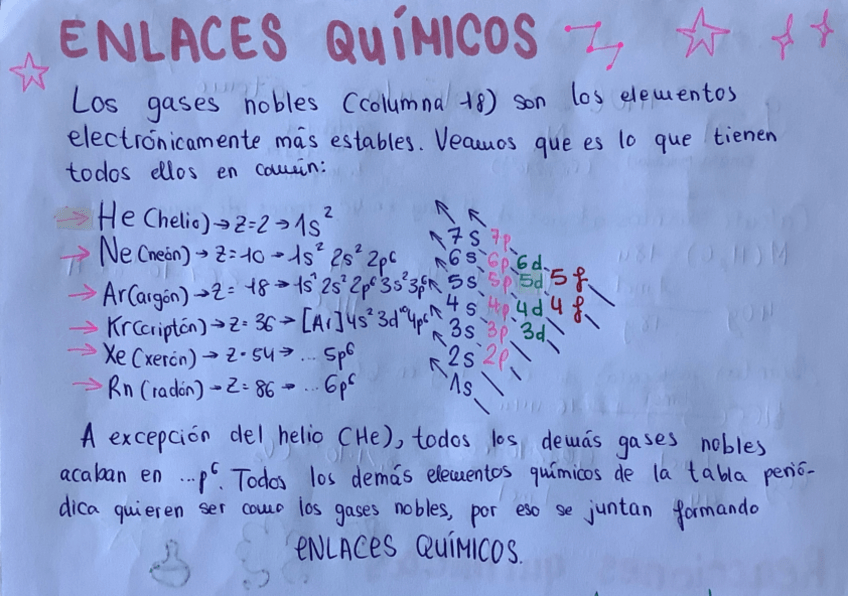 ENLACES QUÍMICOS
Los gases nobles (columna 18) son los elementos
electrónicamente más estables. Veamos que es lo que tienen
todos ellos en común:
→ He (helio) → Z=2 → 1s²
→ Ne (neón) → Z=10 → 1s² 2s² 2p⁶
→ Ar (argón) → Z= 18 → 1s² 2s² 2p⁶ 3s² 3p⁶
→ Kr (criptón) → Z= 36 → [Ar] 4s² 3d¹⁰ 4p⁶
→ Xe (xerón) → Z=54 → ... 5p⁶
→ Rn (radón) → Z= 86 → ... 6p⁶
7s 7p
6s 6p 6d
5s 5p 5d 5f
4s 4p 4d 4f
3s 3p 3d
2s 2p
1s
A excepción del helio (He), todos los demás gases nobles
acaban en ...p⁶. Todos los demás elementos químicos de la tabla perió-
dica quieren ser como los gases nobles, por eso se juntan formando
ENLACES QUÍMICOS.